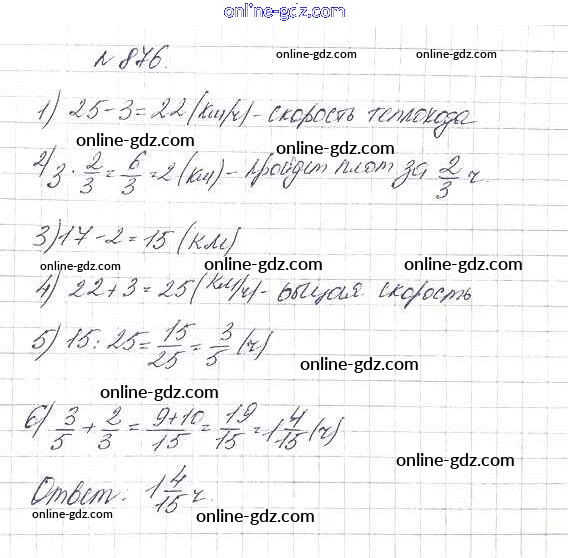 www.online-gdz.com
№ 876.
online-gdz.com
online-gdz.com
1) 25 - 3 = 22 (км/ч) - скорость теплохода
online-gdz.com
online-gdz.com
2) 3 · 2/3 = 6/3 = 2 (км) - пройдет плот за 2/3 ч.
online-gdz.com
online-gdz.com
3) 17 - 2 = 15 (км)
online-gdz.com
online-gdz.com
online-gdz.com
4) 22 + 3 = 25 (км/ч) - общая скорость
5) 15 : 25 = 15/25 = 3/5 (ч)
online-gdz.com
online-gdz.com
6) 3/5 + 2/3 = 9+10/15 = 19/15 = 1 4/15 (ч)
online-gdz.com
Ответ: 1 4/15 ч.
online-gdz.com
online-gdz.com
online-gdz.com